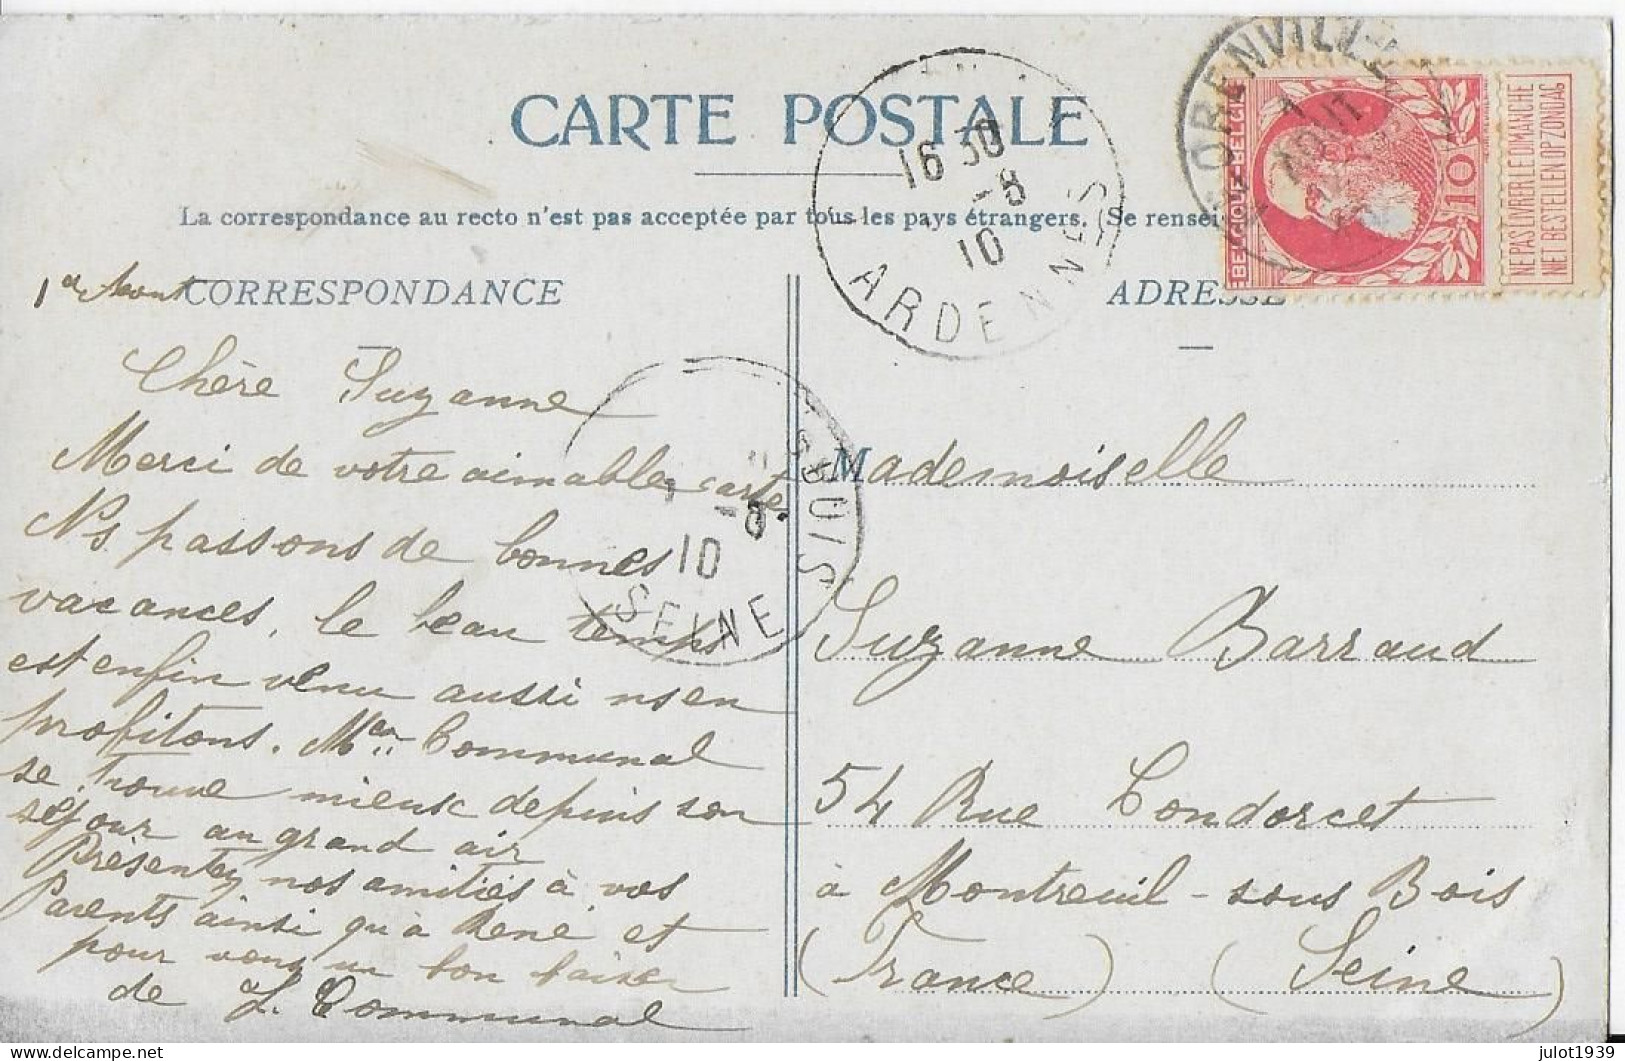 CARTE POSTALE
La correspondance au recto n'est pas acceptée par tous les pays étrangers. (Se rensei
BELGIQUE-BELGIE
10
NE PAS LIVRER LE DIMANCHE
NIET BESTELLEN OP ZONDAG
ORENVILLE
1
AOUT
16 30
-8
10
ARDENNES
CORRESPONDANCE
1er Aout
Chère Suzanne
Merci de votre aimable carte.
Ns passons de bonnes
vacances, le beau temps
est enfin venu aussi ns en
profitons. Communal
se trouve mieux depuis son
séjour au grand air
Présentez nos amitiés à vos
Parents ainsi qu'à René et
pour vous un bon baiser
de L. Communal
-8
10
S BOIS
SEINE
ADRESSE
Mademoiselle
Suzanne Barraud
54 Rue Condorcet
à Montreuil-sous Bois
(France) (Seine)
julot1939